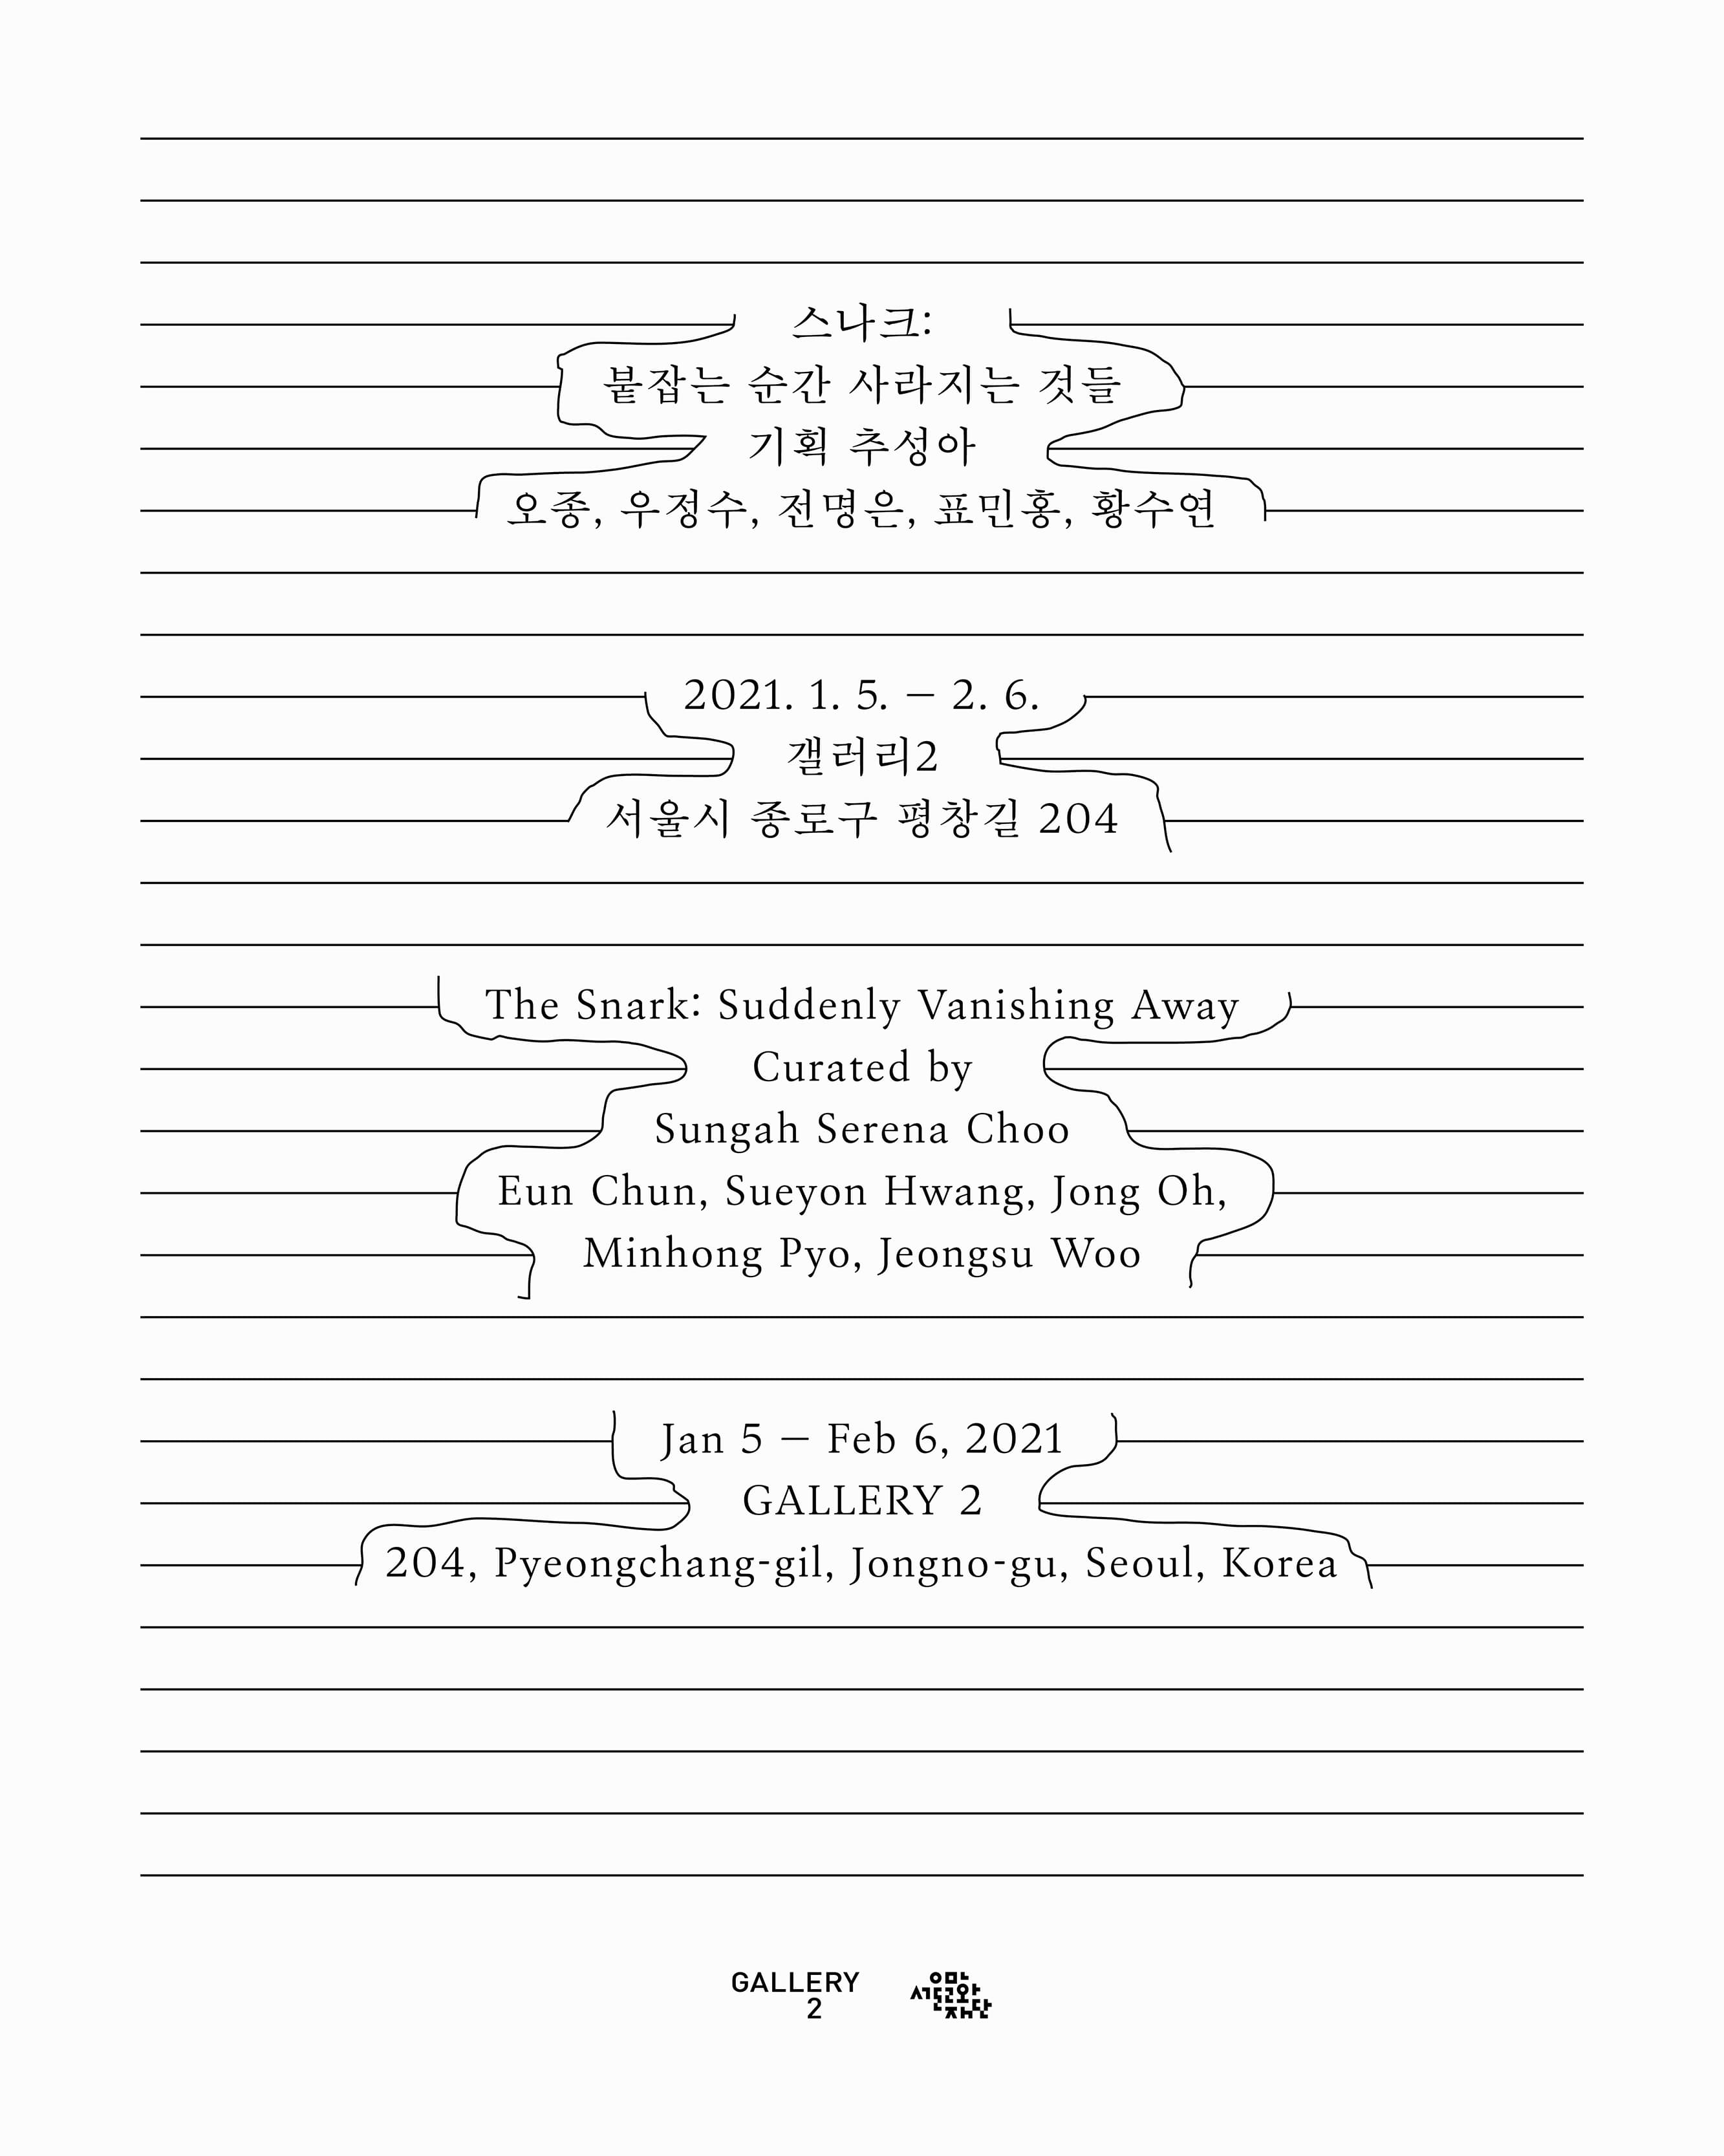 스나크:
붙잡는 순간 사라지는 것들
기획 추성아
오종, 우정수, 전명은, 표민홍, 황수연
2021. 1. 5. – 2. 6.
갤러리2
서울시 종로구 평창길 204
The Snark: Suddenly Vanishing Away
Curated by
Sungah Serena Choo
Eun Chun, Sueyon Hwang, Jong Oh,
Minhong Pyo, Jeongsu Woo
Jan 5 – Feb 6, 2021
GALLERY 2
204, Pyeongchang-gil, Jongno-gu, Seoul, Korea
GALLERY
2
서울문화재단